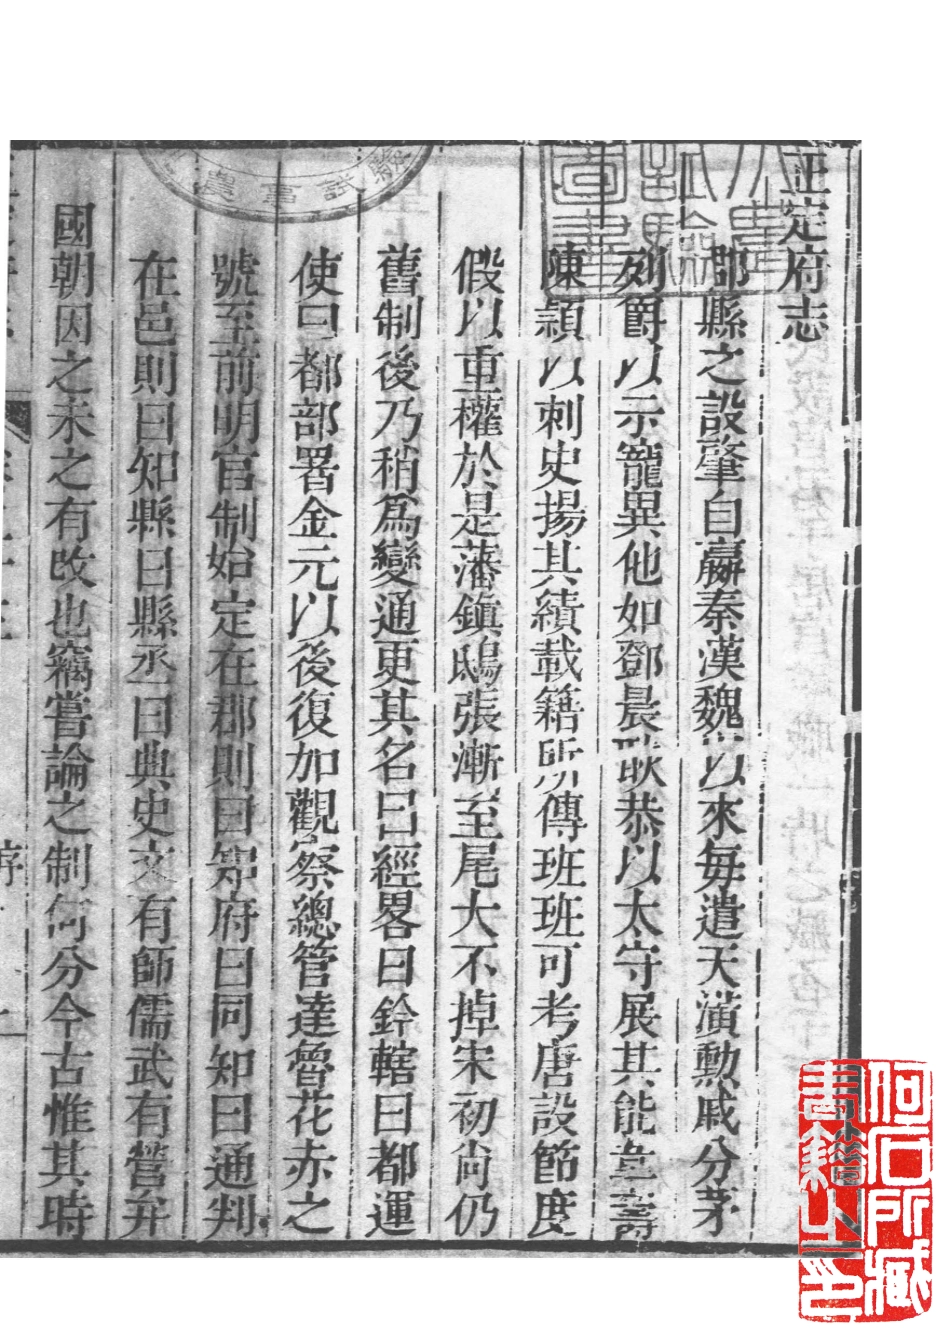 正定府志
郡縣之設肇自嬴秦漢魏以來每遣天潢勳戚分茅
列爵以示寵異他如鄧晨耿恭以太守展其能韋壽
陳頴以刺史揚其績載籍所傳班班可考唐設節度
假以重權於是藩鎮鴟張漸至尾大不掉宋初尚仍
舊制後乃稍爲變通更其名曰經畧曰鈐轄曰都運
使曰都部署金元以後復加觀察總管達魯花赤之
號至前明官制始定在郡則曰知府曰同知曰通判
在邑則曰知縣曰縣丞曰典史文有師儒武有營弁
國朝因之未之有改也竊嘗論之制何分今古惟其時
序
何石所藏書籍之印